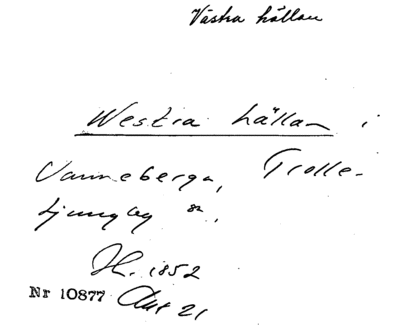 Västra hällan
Westra hällan i
Vanneberga, Trolle-
ljungby sn.
H. 1852
Nr 10877 Akt 21